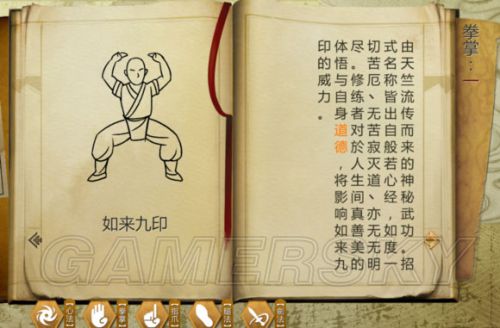 拳掌：一
由天竺流传而来的神秘武功。招
式名称皆出自般若心经，如度一
切苦厄、无苦寂灭道、亦无无明
尽。修练者对於人生间真善美的
体悟与自身道德，将影响如来九
印的威力。
如来九印
GAMERSKY
心法
拳掌
指爪
腿法